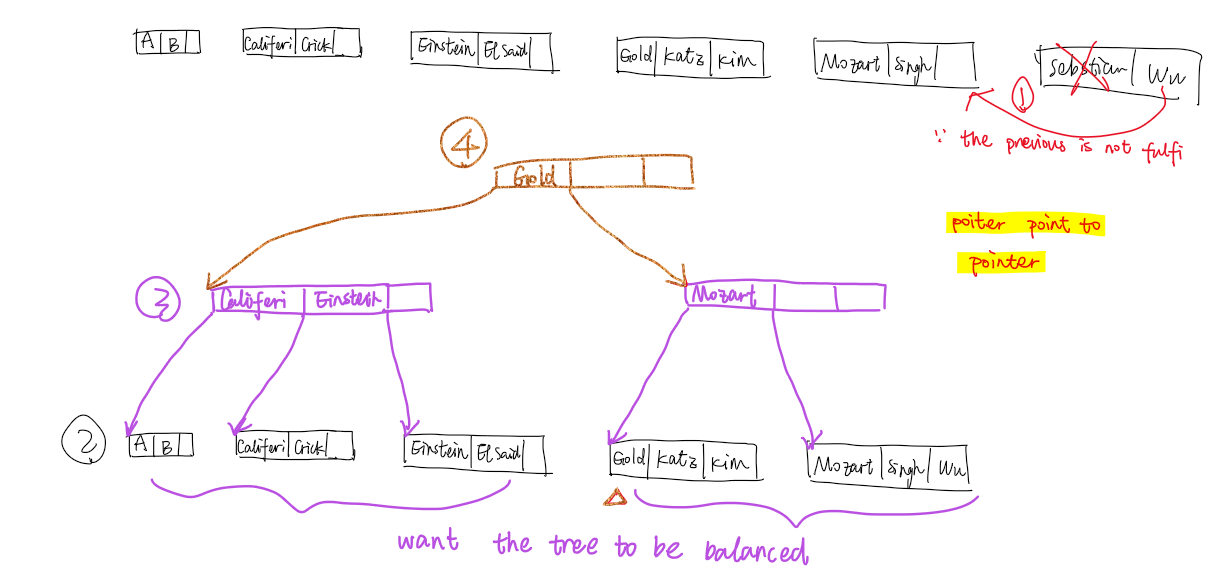 A B
Califeri Crick
Einstein El Said
Gold Katz Kim
Mozart Singh
Sebstian Wu
①
∵ the previous is not fulfi
④
Gold
poiter point to
pointer
③
Califeri Einstein
Mozart
②
A B
Califeri Crick
Einstein El Said
Gold Katz Kim
Mozart Singh Wu
want the tree to be balanced